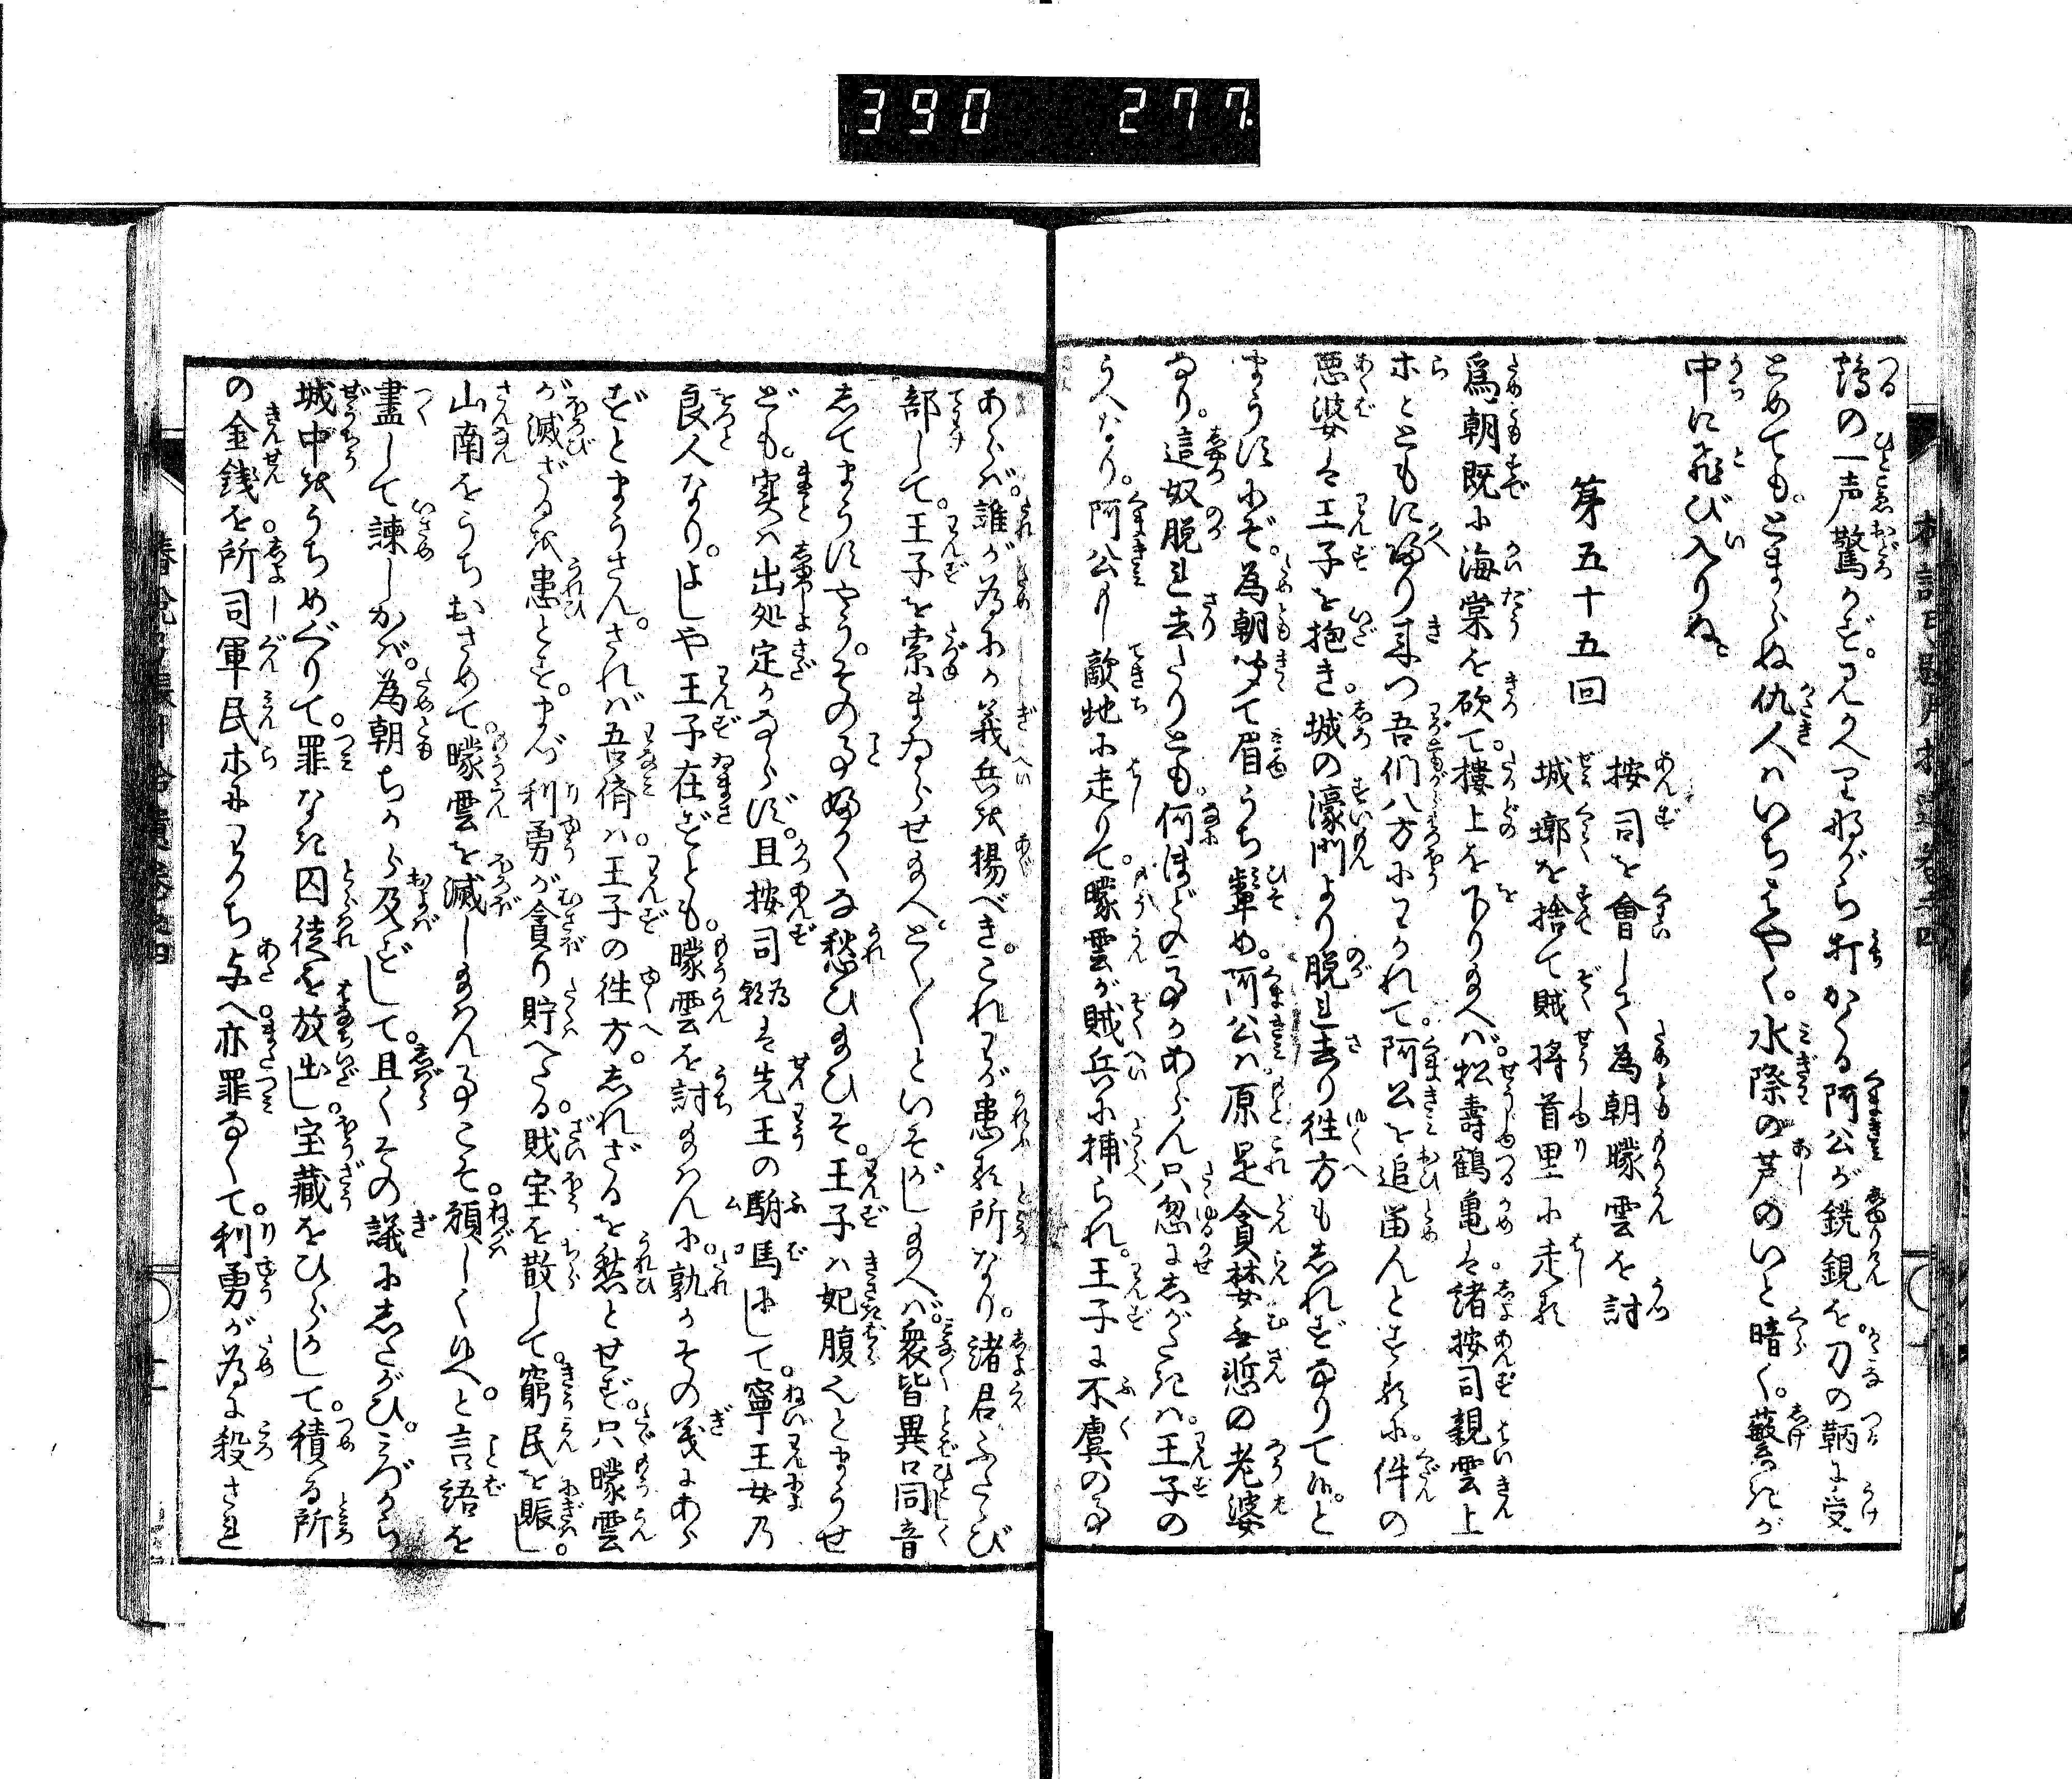 390 277.
鶴の一声驚かず。見かへり形がら打かくる阿公が銃鋧を。刀の鞆に受
とめても。とまらぬ仇人はいちはやく。水際の芦のいと暗く。蘩きが
中に飛び入りね。
第五十五回
按司を會して為朝曚雲を討
城墎を捨て賊将首里に走る
爲朝既に海棠を砍て。樓上を下り給へば。松壽鶴亀は諸按司親雲上
ホとともに帰り来つ吾們八方にわかれて。阿公を追畄んとするに。件の
悪婆は王子を抱き。城の濠門より脱れ去り徃方もしれずなりて候と
まうすにぞ。為朝聞て眉うち顰め。阿公は原是貪婪無慙の老婆
なり。這奴脱れ去たりとも。何ほどの事かあらん只忽にしがたきは。王子の
うへなり。阿公もし敵地に走りて。曚雲が賊兵に捕られ。王子に不虞の事
あらば。誰が為にか義兵を揚べき。これわが患る所なり。諸君ふたゝび
部して。王子を索まゐらせ給へ。とく〳〵といそがし給へば。衆皆異口同音
してまうすやう。その事婦くな愁ひ給ひそ。王子は妃腹にとまうせ
ども。実は出処定かならず。且按司為朝は先王の駙馬にして。寧王女乃
良人なり。よしや王子在ずとも。曚雲を討給はんに。孰かその義にあら
ずとまうさん。されば吾儕は。王子の徃方。しれざるを愁とせず。只曚雲
が滅ざるを患とす。まづ利勇が貪り貯へたる。賊宝を散して。窮民を賑し
山南をうちおさめて。曚雲を滅し給はん事こそ。願しく候へ。と言語を
盡して諫しかば。為朝ちから及ずして。且くその議にしたがひ。みづから
城中をうちめぐりて。罪なき囚徒を放出し。宝藏をひらかして。積る所
の金銭を。所司軍民ホにわかち与へ。亦罪なくて。利勇が為に殺され